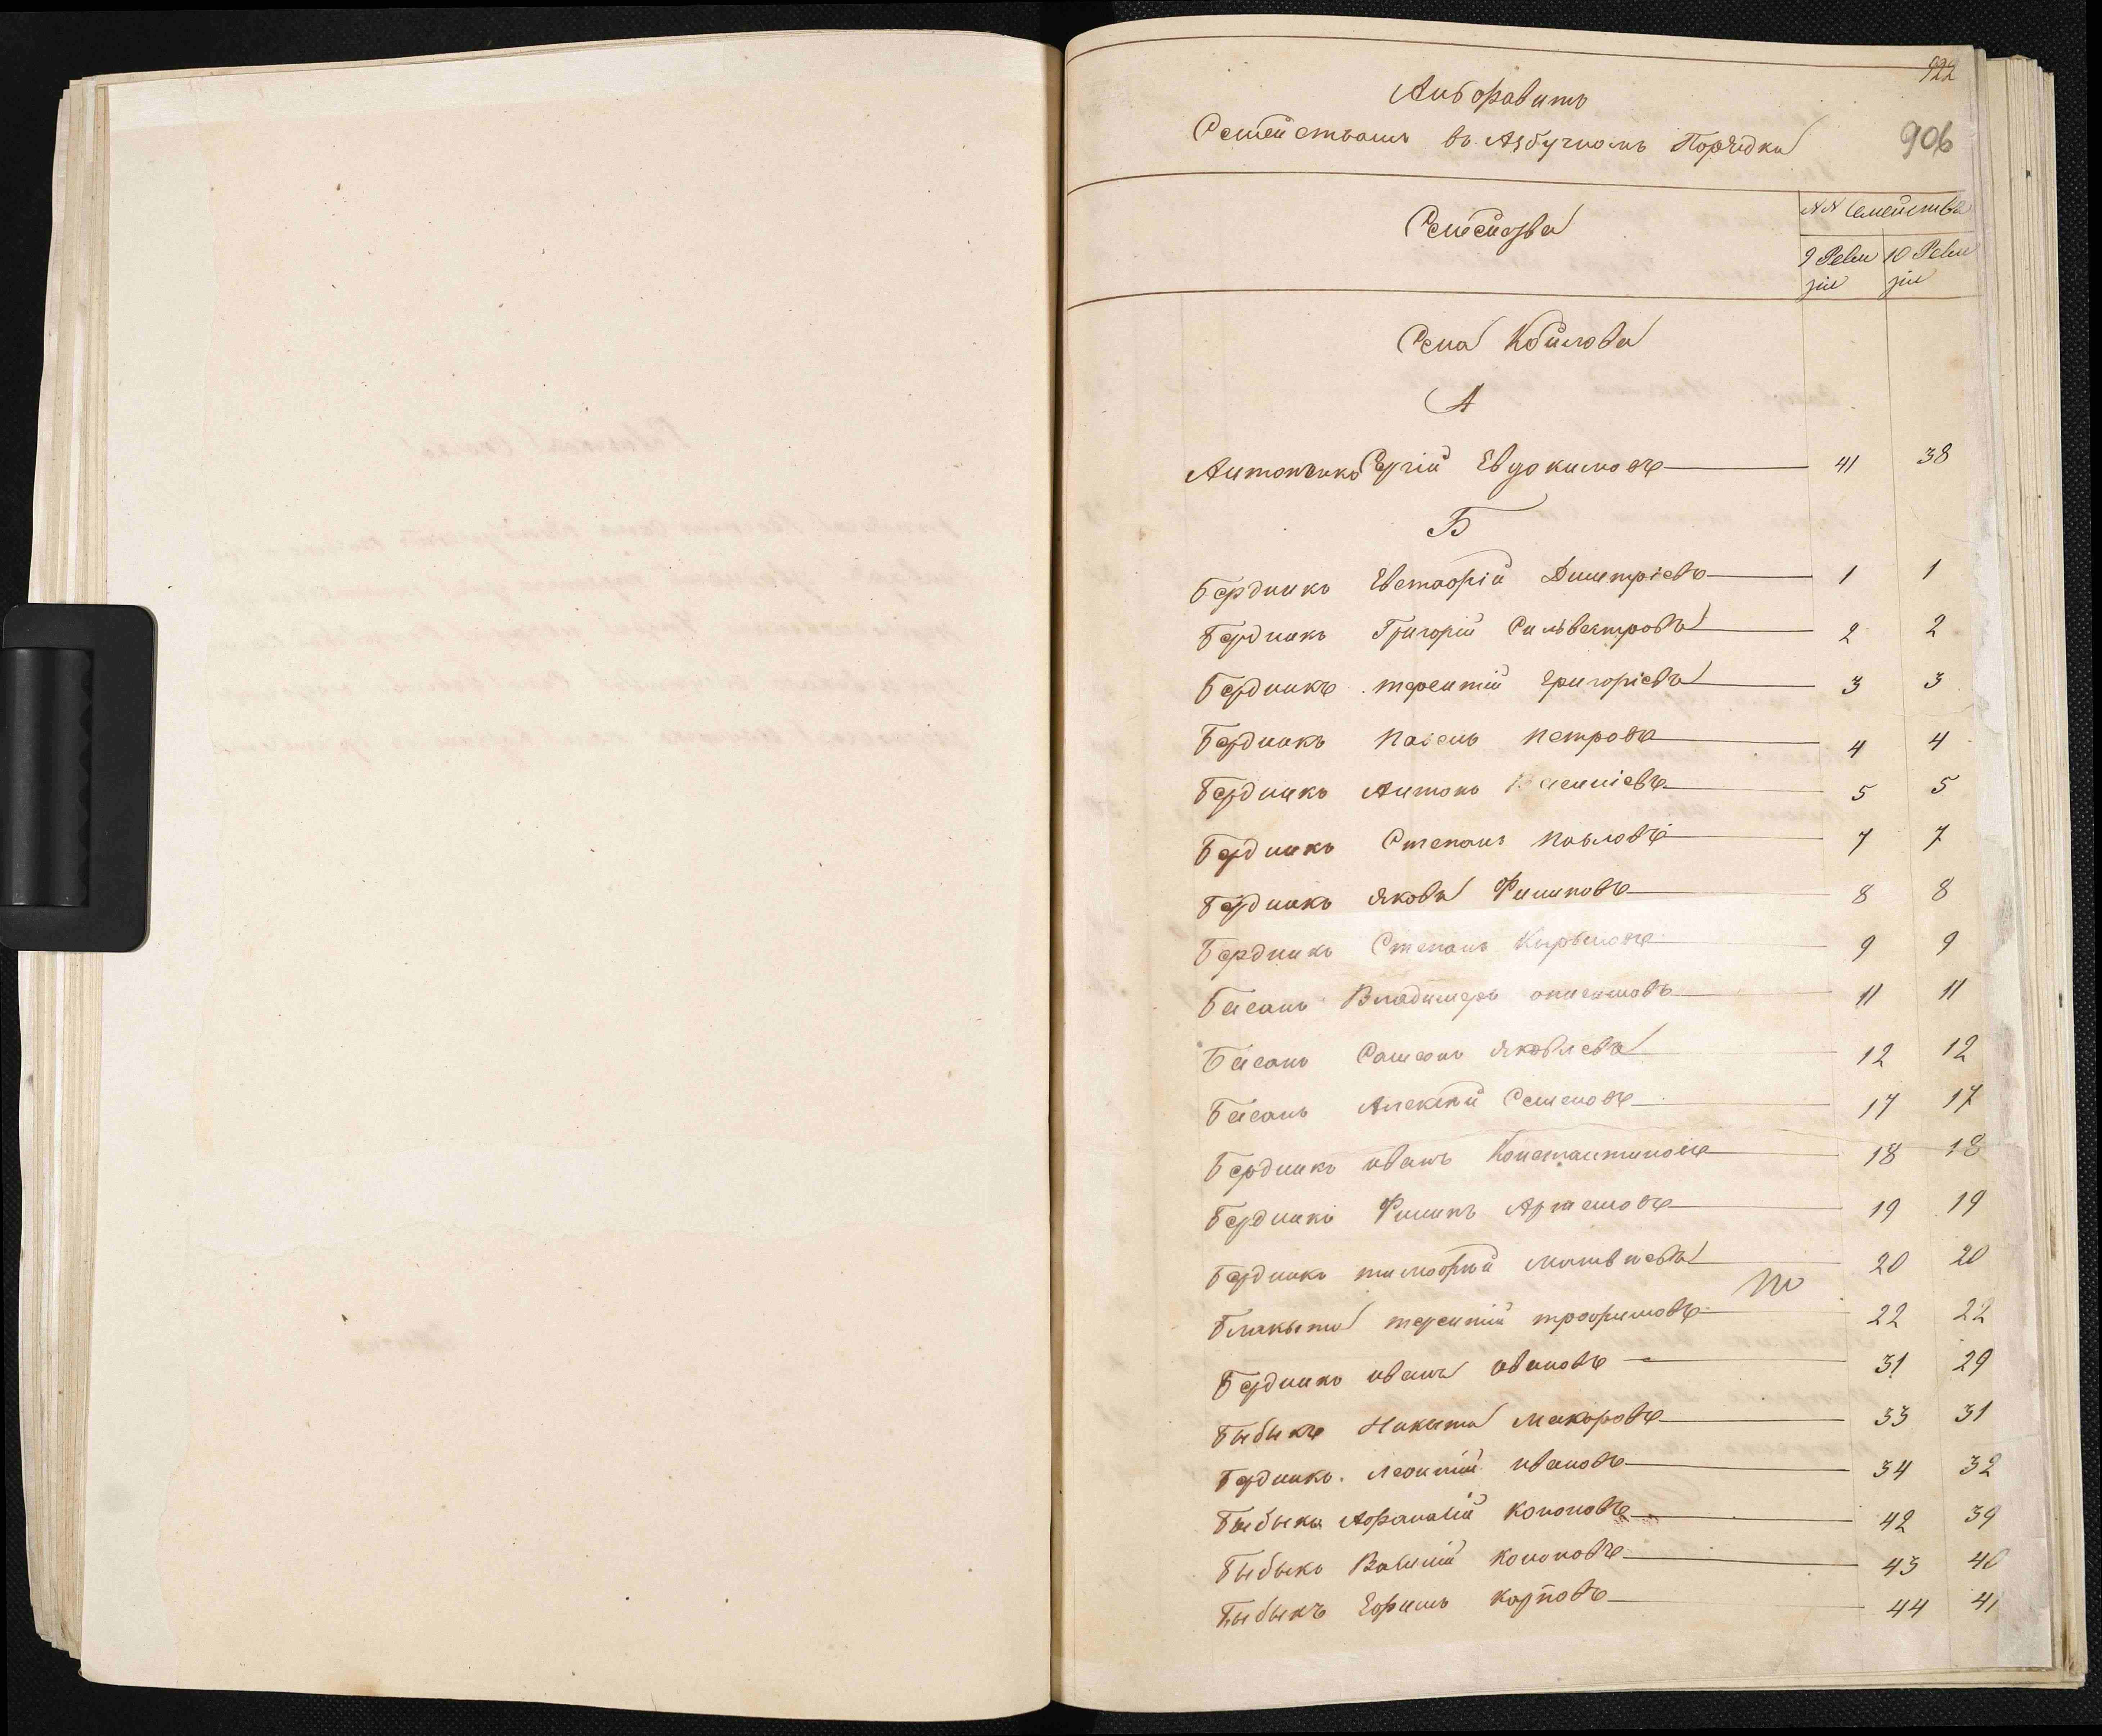 922
Алфавитъ
906
Семействамъ въ Азбучномъ Порядкѣ
Семейства
№№ Семейства
9 Ревизіи
10 Ревизіи
Села
А
Антоненко Сергій Евдокимовъ 41 38
Б
Бердникъ Евстафій Дмитріевъ 1 1
Бердникъ Григорій Сильвестровъ 2 2
Бердникъ терентій григоріевъ 3 3
Бердникъ павелъ петровъ 4 4
Бердникъ Антонъ Василіевъ 5 5
Бердникъ Степанъ павловъ 7 7
Бердникъ яковъ Филиповъ 8 8
Бердникъ Степанъ Кириловъ 9 9
Басанъ Владимеръ онисимовъ 11 11
Басанъ Самсонъ яковлевъ 12 12
Басанъ Алексѣй Семеновъ 17 17
Бердникъ иванъ Константиновъ 18 18
Бердникъ Филипъ Артемовъ 19 19
Бердникъ тимофѣй матвѣевъ 20 20
терентій трофимовъ 22 22
Бердникъ иванъ ивановъ 31 29
Бибикъ Никита Макаровъ 33 31
Бердникъ леонтій ивановъ 34 32
Бибикъ Афанасій кононовъ 42 39
Бибикъ Василій кононовъ 43 40
Бибикъ Ефимъ карповъ 44 41